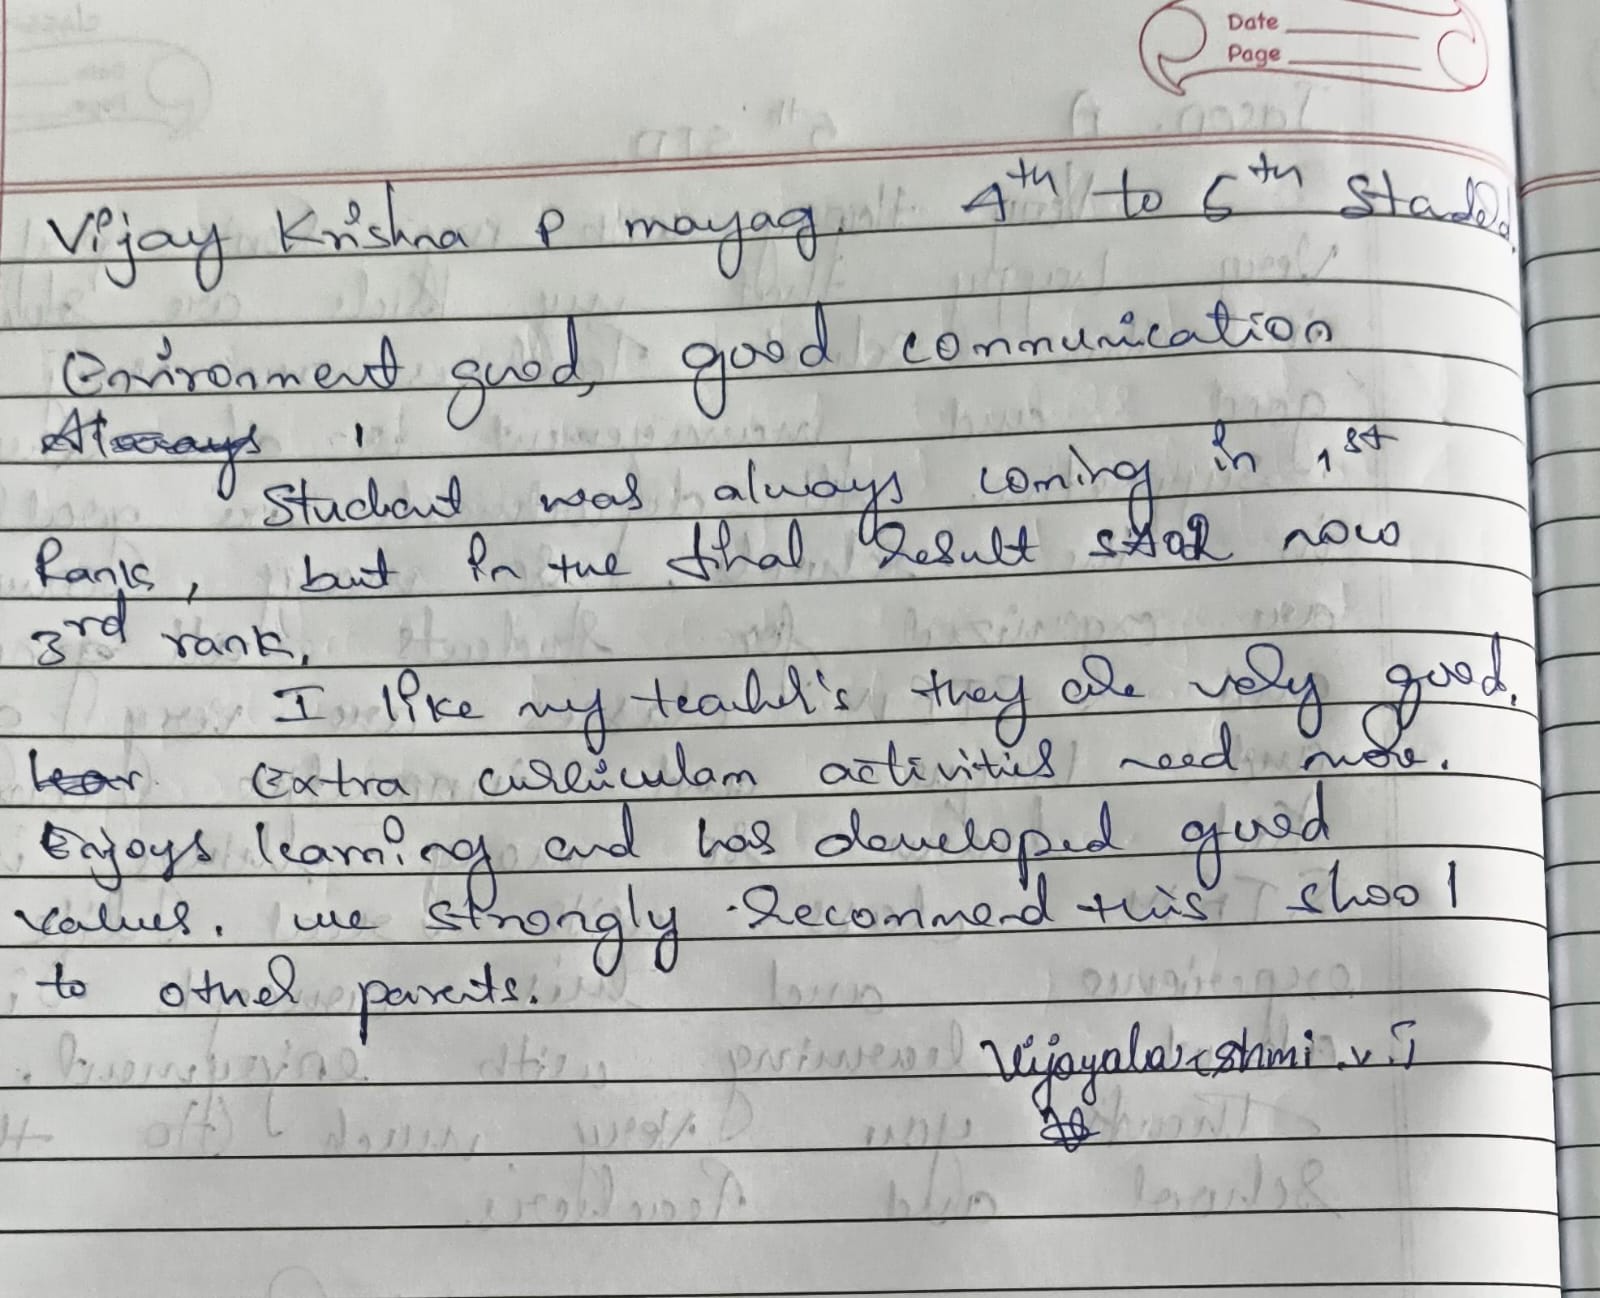 Date
Page
Vijay Krishna P mayag. 4th to 5th
Environment good, good communication
Always
Student was always coming in 1st
Rank, but in the final result now
3rd rank.
I like my teacher's they are very good.
Extra curriculam activities need more.
Enjoys learning and has developed good
values. we strongly recommend this shool
to other parents.
Vijayalakshmi .v.T